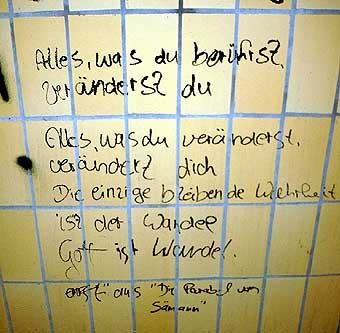 Alles, was du berührst,
veränderst du
Alles, was du veränderst,
verändert dich
Die einzige bleibende Wahrheit
ist der Wandel
Gott ist Wandel.
aus "Die Parabel vom
Sämann"